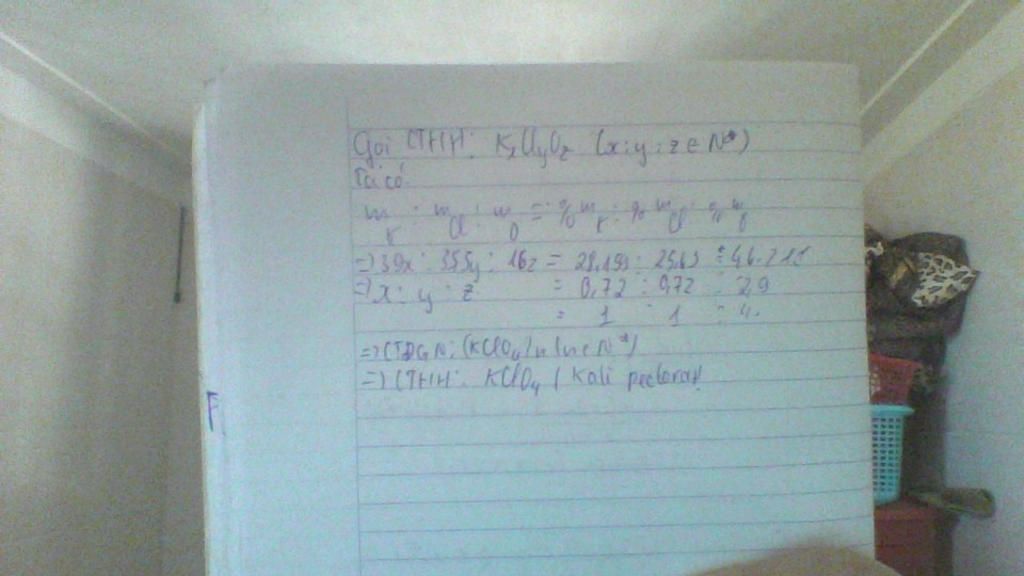 Gọi CTHH: KxClyOz (x:y:z ∈ N*)
Ta có.
m K : m Cl : m O = % m K : % m Cl : % m O
=> 39x : 35,5y : 16z = 28,159 : 25,63 : 46,211
=> x : y : z = 0,72 : 0,72 : 2,9
= 1 : 1 : 4.
=> CTĐGN: (KClO4)n (n ∈ N*)
=> CTHH: KClO4 ( Kali peclorat)
F